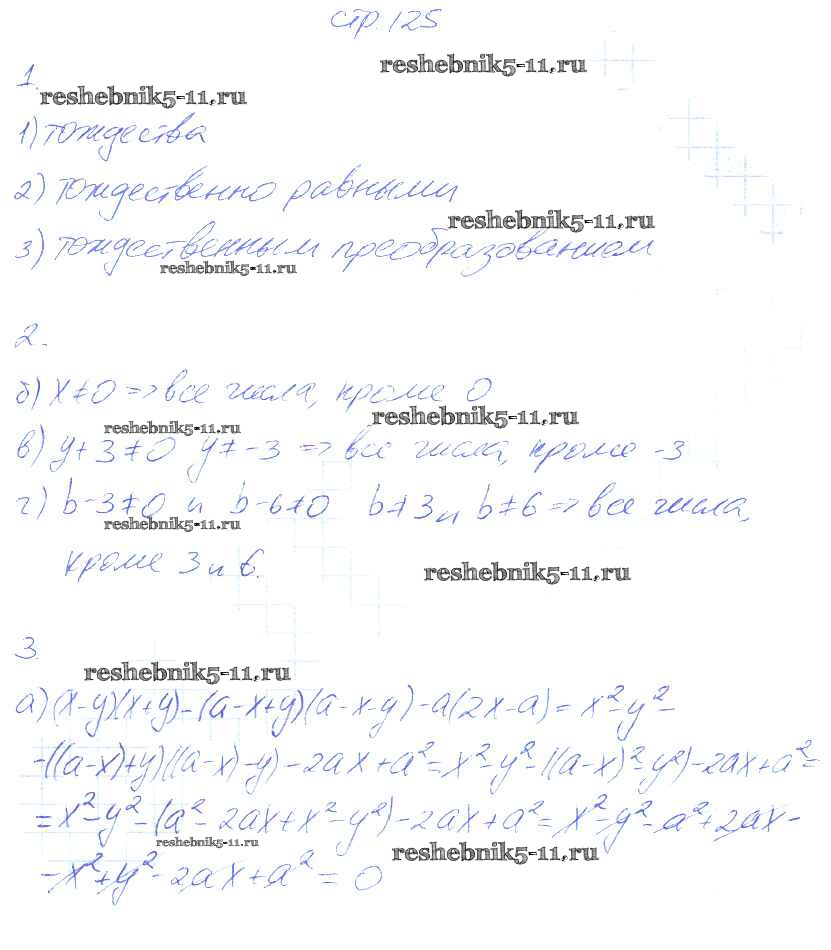 стр. 125
reshebnik5-11.ru
1.
reshebnik5-11.ru
1) тождества
2) тождественно равными
reshebnik5-11.ru
3) тождественным преобразованием
reshebnik5-11.ru
2.
б) x≠0 => все числа, кроме 0
reshebnik5-11.ru
reshebnik5-11.ru
в) y+3≠0 y≠-3 => все числа, кроме -3
г) b-3≠0 и b-6≠0 b≠3 и b≠6 => все числа,
reshebnik5-11.ru
кроме 3 и 6.
reshebnik5-11.ru
3.
reshebnik5-11.ru
а) (x-y)(x+y)-(a-x+y)(a-x-y)-a(2x-a)=x²-y²-
-((a-x)+y)((a-x)-y)-2ax+a²=x²-y²-((a-x)²-y²)-2ax+a²=
=x²-y²-(a²-2ax+x²-y²)-2ax+a²=x²-y²-a²+2ax-
reshebnik5-11.ru
reshebnik5-11.ru
-x²+y²-2ax+a²=0